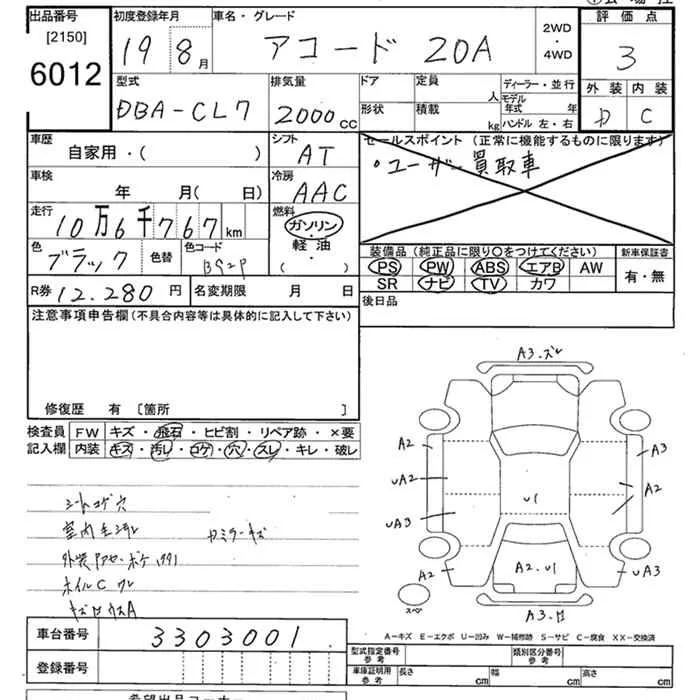 出品番号 初度登録年月 車名・グレード 評価点
[2150]
6012 19 8月 アコード 20A 2WD・4WD 3
外装 内装
D C
型式 排気量 ドア 定員 人 ディーラー・並行
DBA-CL7 2000cc 形状 積載 kg モデル年式 年 ハンドル 左・右
車歴 シフト セールスポイント (正常に機能するものに限ります)
自家用・( ) AT ・ユーザー買取車
車検 冷房
年 月(日) AAC
走行 燃料
10万6千767km ガソリン・軽油・( )
色 ブラック 色替 色コード B92P
装備品 (純正品に限り○をつけてください) 新車保証書
PS PW ABS エアB AW 有・無
SR ナビ TV カワ
R券 12.280円 名変期限 月 日 後日品
注意事項申告欄(不具合内容等は具体的に記入して下さい)
修復歴 有 [箇所 ]
検査員記入欄
FW キズ・飛石・ヒビ割・リペア跡・×要
内装 キズ・汚レ・コゲ・穴・スレ・キレ・破レ
シートコゲ穴
外装
ホイルC
A3.ズレ
A2 A3
UA2 A2
U1
UA3
A2 A2.U1 UA3
スペ
A3.
A-キズ E-エクボ U-凹み W-補修跡 S-サビ C-腐食 XX-交換済
車台番号 3303001
登録番号
型式指定番号 参考 類別区分番号 参考
車庫証明用 参考 長さ cm 幅 cm 高さ cm
希望出品コーナー